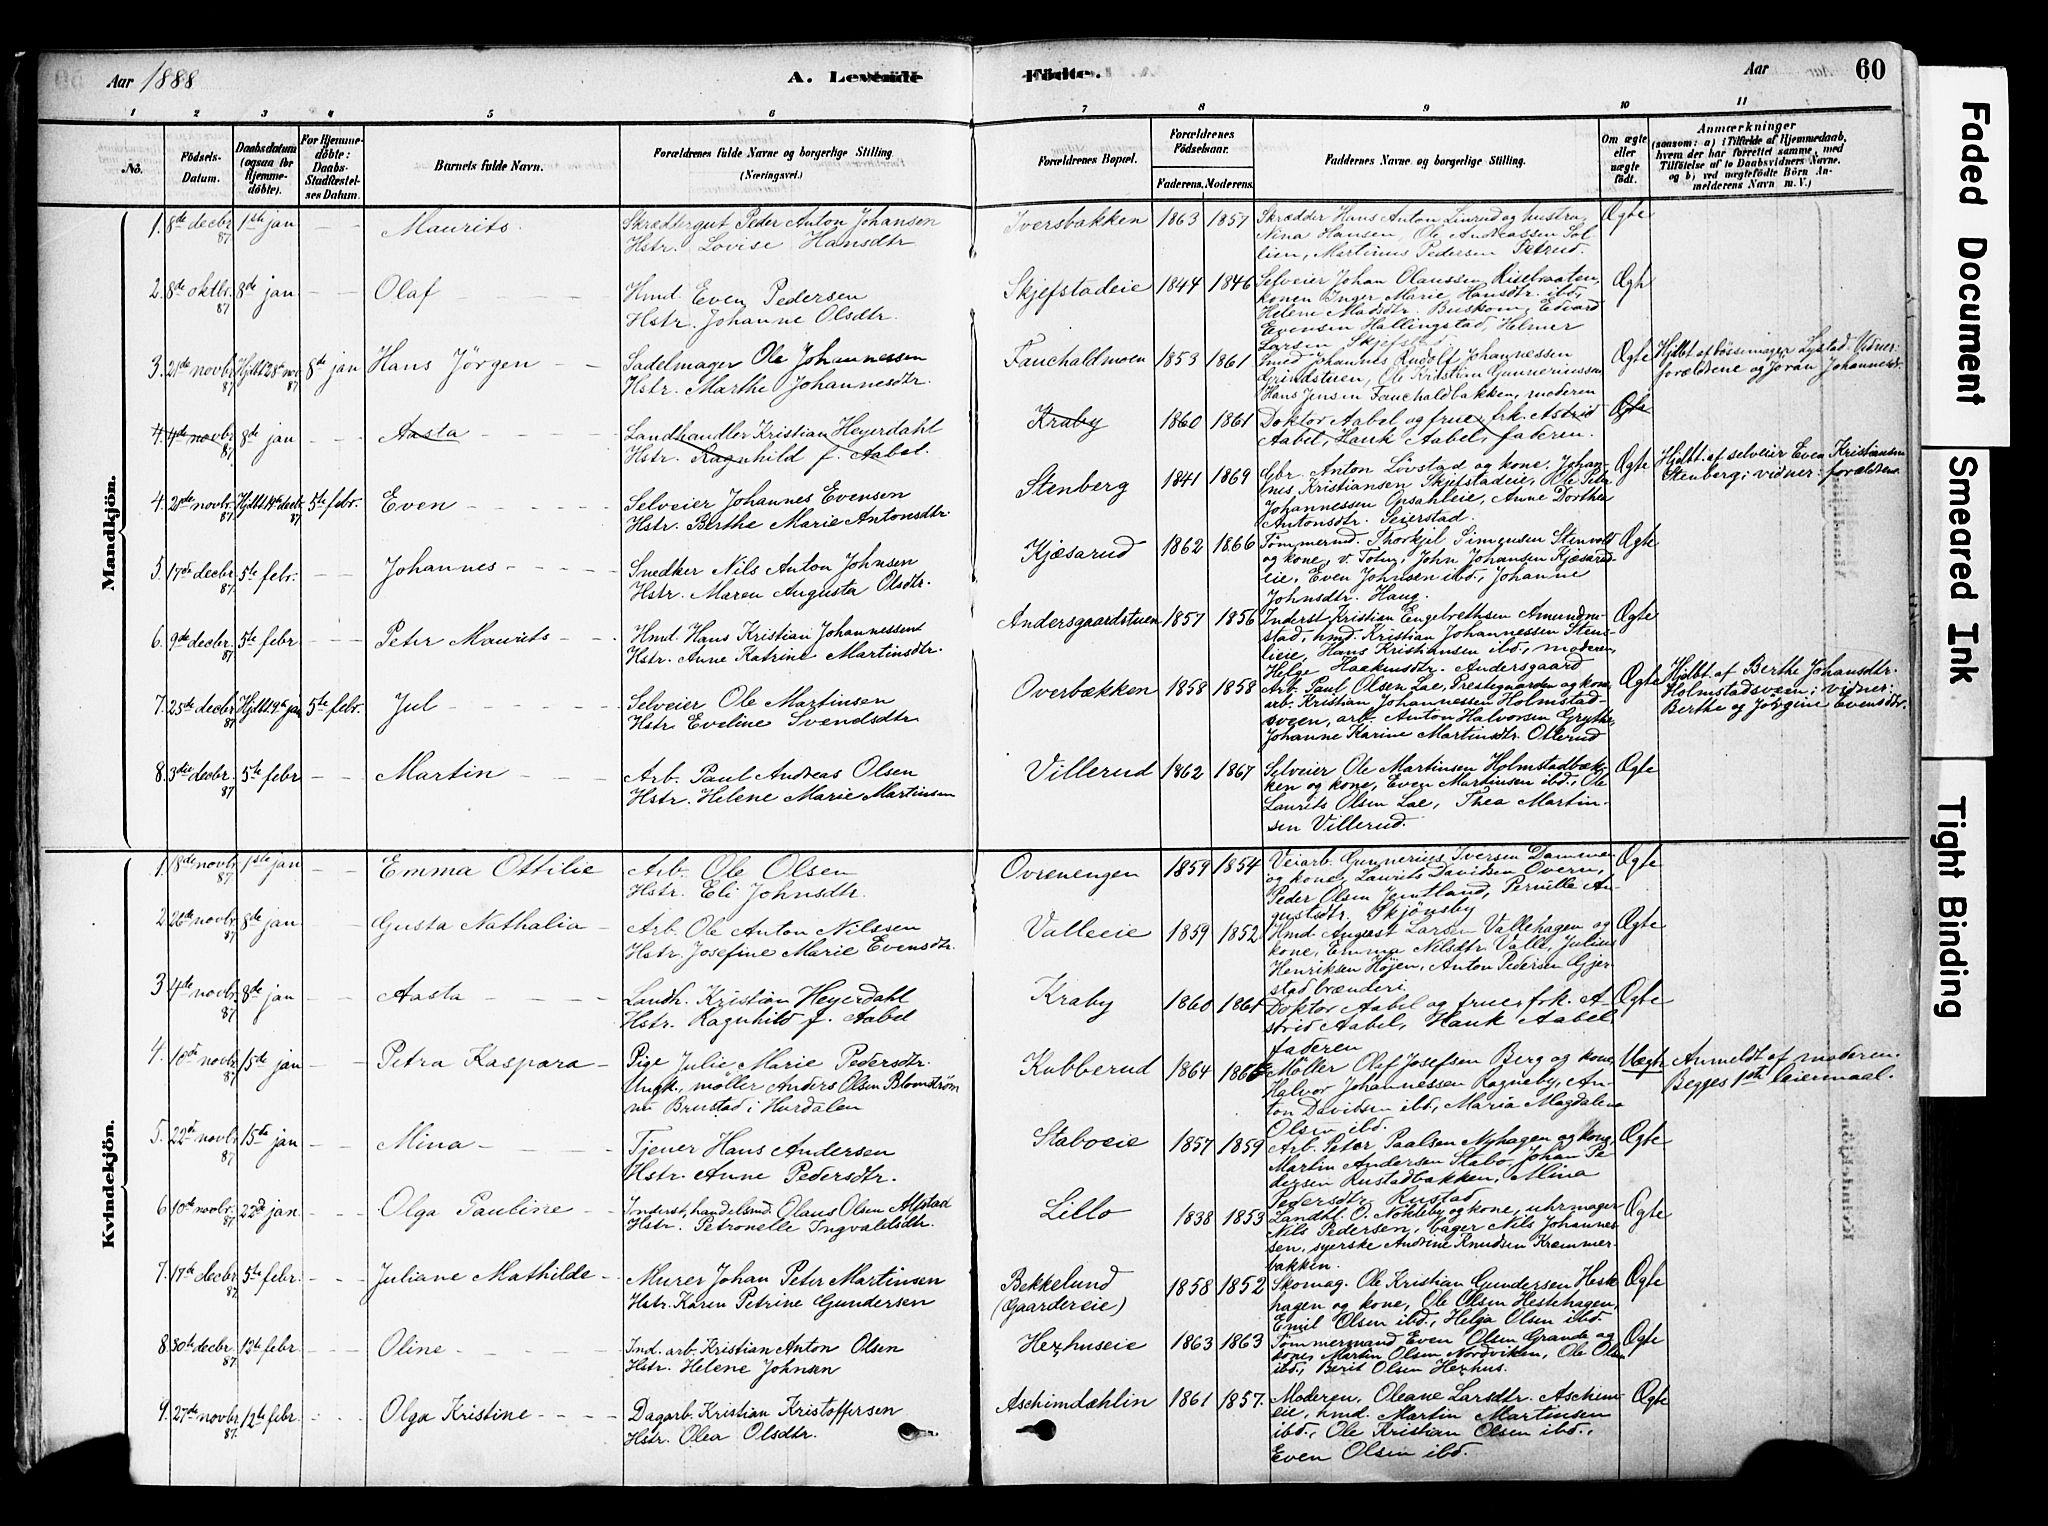 Aar 1888
A. Levende
Födte.
Aar
60
1 2 3 4 5 6 7 8 9 10 11
No.
Födsels-Datum.
Daabsdatum (ogsaa for Hjemmedöbte).
For Hjemmedöbte: Daabs-Stadfæstelses Datum.
Barnets fulde Navn.
Forældrenes fulde Navne og borgerlige Stilling (Næringsvei.)
Forældrenes Bopæl.
Forældrenes Födselsaar.
Faderens. Moderens.
Faddernes Navne og borgerlige Stilling.
Om ægte eller uægte födt.
Anmærkninger
(saasom: a) i Tilfælde af Hjemmedaab, hvem der har forrettet samme, med Tilföielse af to Daabsvidners Navne, og b) ved uægtefödte Börn Anmelderens Navn m. V.)
Mandkjön.
1. 8de decbr 87 1ste jan – – Maurits. Skrædtergut Peder Anton Johansen
Hstr. Lovise Hansdtr
Iversbakken 1863 1857 Skrædder Hans Anton Linrud og hustru
Nina Hansen, Ole Andreassen Sol-
lien, Martinius Pedersen Petrud. Ægte
2. 8de oktbr. 87 8de jan – – Olaf Hmd. Even Pedersen
Hstr. Johanne Olsdtr.
Skjefstadeie 1844 1846 Selveier Johan Olaussen Risebraaten,
konen Inger Marie Hansdtr. ibd.,
Helene Madsdtr. Buskom, Edvard
Evensen Hallingstad, Helmer
Larsen Skjefstad. Ægte
3. 21de novbr. 87 Hjdbt 28de nov 87 8de jan Hans Jörgen Sadelmager Ole Johannessen
Hstr. Marthe Johannesdtr.
Fauchaldmoen 1853 1861 Smed Johannes Rudolf Johannessen
Grindstuen, Ole Kristian Gunneriussen
Hans Jensen Fauchaldbakken, moderen Ægte
Hjdbt. af bössemager Lystad. Vidner:
forældrene og Jöran Johannesdr.
4. 4de novbr 87 8de jan – – Aasta Landhandler Kristian Heyerdahl
Hstr. Ragnhild f. Aabel.
Kraby 1860 1861 Doktor Aabel og frue, frk. Astrid
Aabel, Hank Aabel, faderen. Ægte
4. 20de novbr. 87 Hjdbt 14de decbr 87 5te febr. Even Selveier Johannes Evensen
Hstr. Berthe Marie Antonsdtr.
Stenberg 1841 1869 Gbr. Anton Lövstad og kone, Johan-
nes Kristiansen Skjefstadeie, Ole Peter
Johannessen Opsahleie, Anne Dorthea
Antonsdtr. Seierstad. Ægte
Hjdbt. af selveier Even Kristiansen
Stenberg; vidner: forældrene.
5. 17de decbr 87 5te febr. – – Johannes Snedker Nils Anton Johnsen
Hstr. Maren Augusta Olsdtr.
Kjæsarud 1862 1866 Tömmermd. Thorkjil Simensen Stenvolt
og kone, v. Toten, John Johansen Kjæsarud-
eie, Even Johnsen ibd., Johanne
Johnsdtr. Haug. Ægte
6. 9de decbr. 87 5te febr – – Peter Maurits Hmd. Hans Kristian Johannessen
Hstr. Anne Katrine Martinsdtr.
Andersgaardstuen 1857 1856 Inderst Kristian Engebrethsen Amundru-
stad, hmd. Kristian Johannessen Sten-
lieie, Hans Kristiansen ibd., moderen,
Helge Haakensdtr. Andersgaard Ægte
7. 25de decbr 87 Hjdbt 9de jan 5te febr. Jul Selveier Ole Martinsen
Hstr. Eveline Svendsdtr
Overbækken 1858 1858 Arb. Paul Olsen Lae, Prestegaarden og kone,
arb. Kristian Johannessen Holmstad-
svoen, arb. Anton Halvorsen Grythe,
Johanne Karine Martinsdtr. Ollerud Ægte
Hjdbt. af Berthe Johansdtr.
Holmstadsveen; vidner:
Berthe og Jörgine Evensdtr.
8. 3die decbr. 87 5te febr – – Martin Arb. Paul Andreas Olsen
Hstr. Helene Marie Martinsen
Villerud 1862 1867 Selveier Ole Martinsen Holmstadbæk-
ken og kone, Even Martinsen ibd., Ole
Laurits Olsen Lae, Thea Martin-
sen Villerud. Ægte
Kvindekjön.
1. 18de novbr 87 1ste jan – – Emma Ottilie Arb. Ole Olsen
Hstr. Eli Johnsdtr.
Ovrenengen 1859 1854 Veiarb. Gunnerius Iversen Dammen
og kone, Laurits Davidsen Overn,
Peder Olsen Jemtland, Pernille Au-
gustsdtr. Skjönsby Ægte
2. 26de novbr. 87 8de jan – – Gusta Nathalia Arb. Ole Anton Nilssen
Hstr. Josefine Marie Evensdtr.
Valleeie 1859 1852 Hmd. August Larsen Vallehagen og
kone, Emma Nilsdtr. Valle, Julius
Henriksen Højen, Anton Pedersen Gjer-
stadbrænderi Ægte
3 4de novbr. 87 8de jan – – Aasta Landh. Kristian Heyerdahl
Hstr. Ragnhild f. Aabel
Kraby 1860 1861 Doktor Aabel og frue, frk. A-
strid Aabel, Hank Aabel,
faderen Ægte
4. 10de novbr 87 15de jan – – Petra Kaspara Pige Julie Marie Pedersdtr.
Ungk., møller Anders Olsen Blomström
nu Brustad i Hurdalen
Kubberud 1864 1866 Möller Olaf Josefsen Berg og kone,
Halvor Johannessen Ragneby, An-
ton Davidsen ibd., Maria Magdalena
Olsen ibd. Uægte
Anmeldt af moderen.
Begges 1ste leiermaal.
5. 22de novbr 87 15de jan – – Mina Tjener Hans Andersen
Hstr. Anne Pedersdtr.
Staboeie 1857 1859 Arb. Peter Paalsen Nyhagen og kone,
Martin Andersen Stabo, Johan Pe-
dersen Rustadbakken, Mina
Pedersdtr. Rustad Ægte
6. 10de novbr. 87 22de jan – – Olga Pauline Inderst, handelsmd. Olaus Olsen Alfstad
Hstr. Petronelle Ingvaldsdtr.
Lillo 1838 1853 Landhl. O. Nökleby og kone, uhrmager
Nils Pedersen, bager Nils Johannes-
sen, syerske Andrine Knudsen Kremmer-
bakken. Ægte
7. 17de decbr 87 5te febr. – – Juliane Mathilde Murer Johan Peter Martinsen
Hstr. Karen Petrine Gundersen
Bekkelund (Gaardereie) 1858 1852 Skomag. Ole Kristian Gundersen Heste-
hagen og kone, Ole Olsen Hestehagen,
Emil Olsen ibd., Helga Olsen ibd. Ægte
8. 30te decbr 87 12te febr – – Oline Ind. arb. Kristian Anton Olsen
Hstr. Helene Johnsen
Hexhuseie 1863 1863 Tömmermand Even Olsen Grande og
kone, Martin Olsen Nordviken, Ole Olsen
ibd., Berit Olsen Hexhus. Ægte
9. 27de novbr 87. 12te febr. – – Olga Kristine Dagarb. Kristian Kristoffersen
Hstr. Olea Olsdtr.
Aschimdæhlin 1861 1857. Moderen, Oleane Larsdtr. Aschim-
eie, hmd. Martin Martinsen
ibd., Ole Kristian Olsen ibd.,
Even Olsen ibd. Ægte
Faded Document
Smeared Ink
Tight Binding